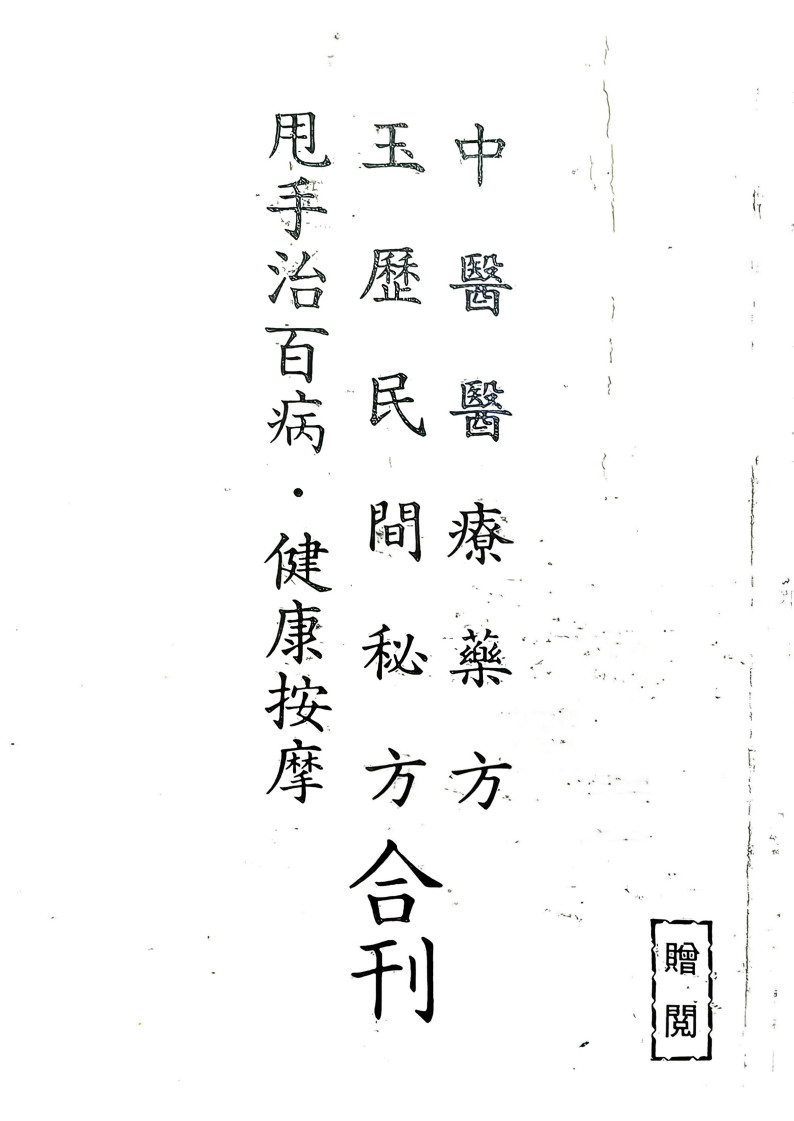 中醫醫療藥方
玉歷民間秘方
甩手治百病・健康按摩
合刊
贈閱